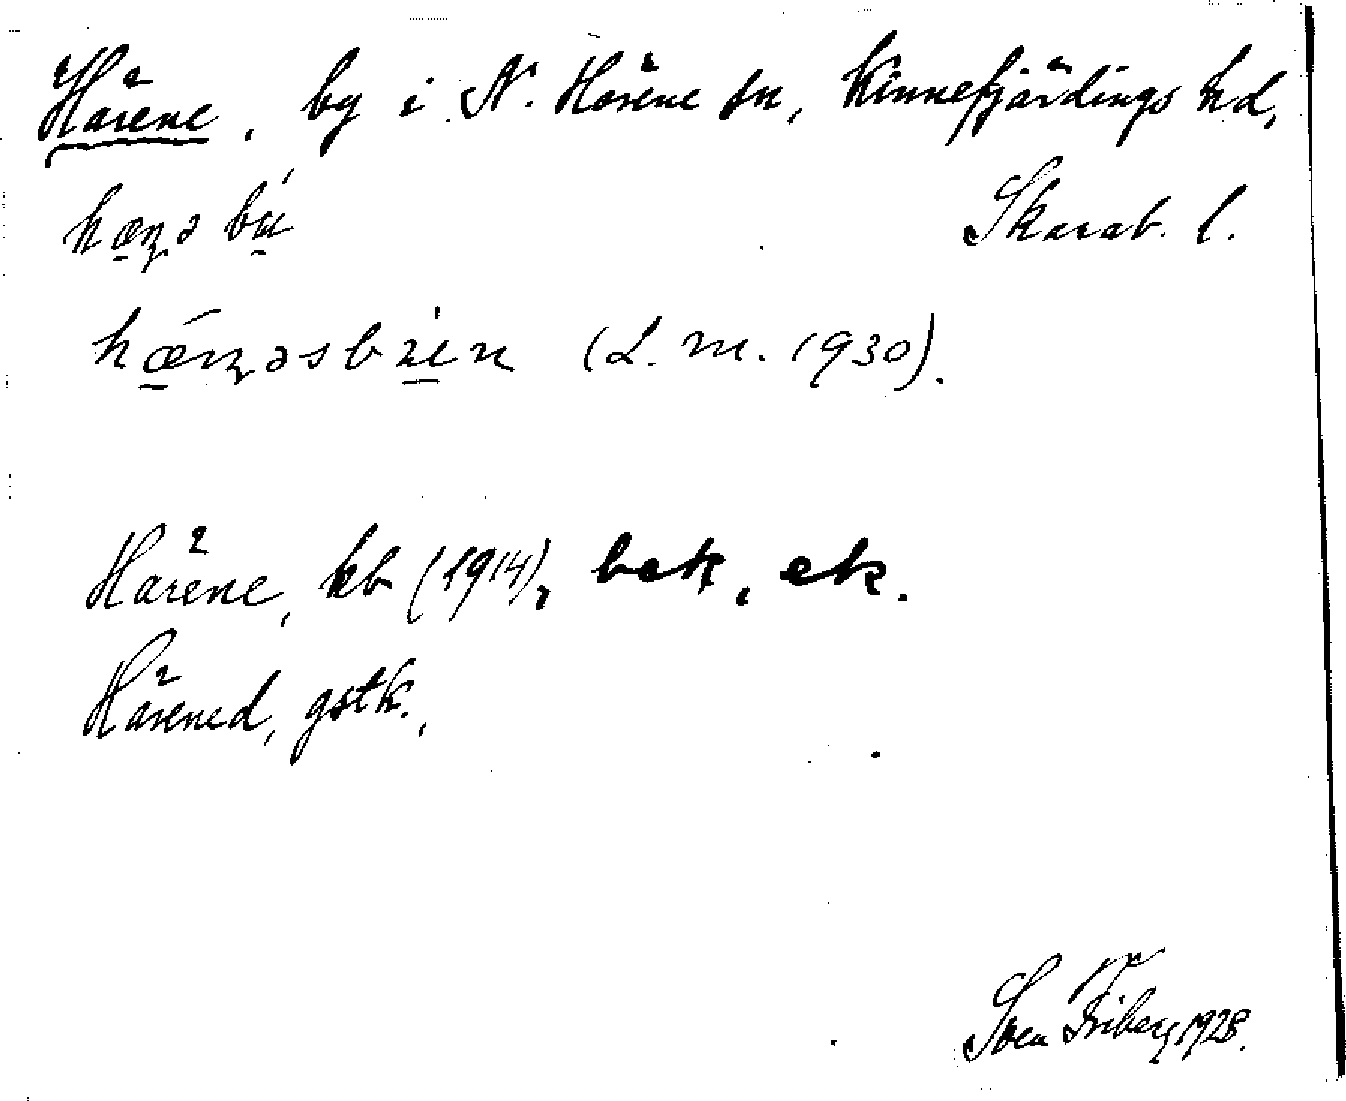 Härene, by i N. Härene sn, Kinnefjärdings hd,
Skarab. l.
hæ̱ɳə bú̱
hǽ̱ɳəsbu̱̍en (L. m. 1930).
Härene, kb (1914), bek, ek.
Härened, gstk.,
Sven Friberg 1928.